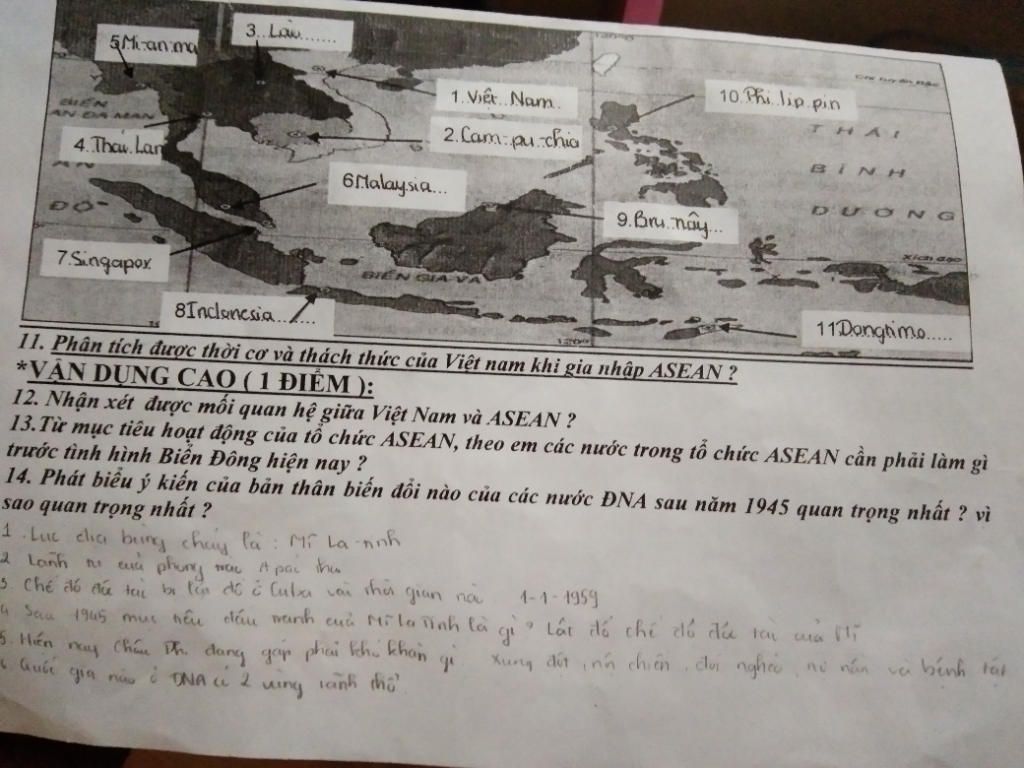 3..Lào.......
5.Mi-an-ma
1.Việt..Nam.
10.Phi.lip.pin
BIỂN
AN-ĐA-MAN
2.Cam-pu-chia
4.Thái.Lan
THÁI
BÌNH
DƯƠNG
6.Malaysia...
ẤN
ĐỘ
9.Bru..nây...
7.Singapor
Xích đạo
BIỂN GIA-VA
8.Indonesia........
11.Dongtimo.....
11. Phân tích được thời cơ và thách thức của Việt nam khi gia nhập ASEAN ?
*VẬN DỤNG CAO ( 1 ĐIỂM ):
12. Nhận xét được mối quan hệ giữa Việt Nam và ASEAN ?
13.Từ mục tiêu hoạt động của tổ chức ASEAN, theo em các nước trong tổ chức ASEAN cần phải làm gì
trước tình hình Biển Đông hiện nay ?
14. Phát biểu ý kiến của bản thân biến đổi nào của các nước ĐNA sau năm 1945 quan trọng nhất ? vì
sao quan trọng nhất ?
1. Lục địa bùng cháy là : Mĩ La-tinh
2 Lãnh tụ của phong trào Apac thai
3. Chế độ độc tài bị lật đổ ở Cuba vào thời gian nào 1-1-1959
4. Sau 1945 mục tiêu đấu tranh của Mĩ la tinh là gì ? Lật đổ chế độ độc tài của Mĩ
5. Hiện nay Châu Phi đang gặp phải khó khăn gì xung đột, nội chiến, đói nghèo, nợ nần và bệnh tật
6. Quốc gia nào ở ĐNA có 2 vùng lãnh thổ